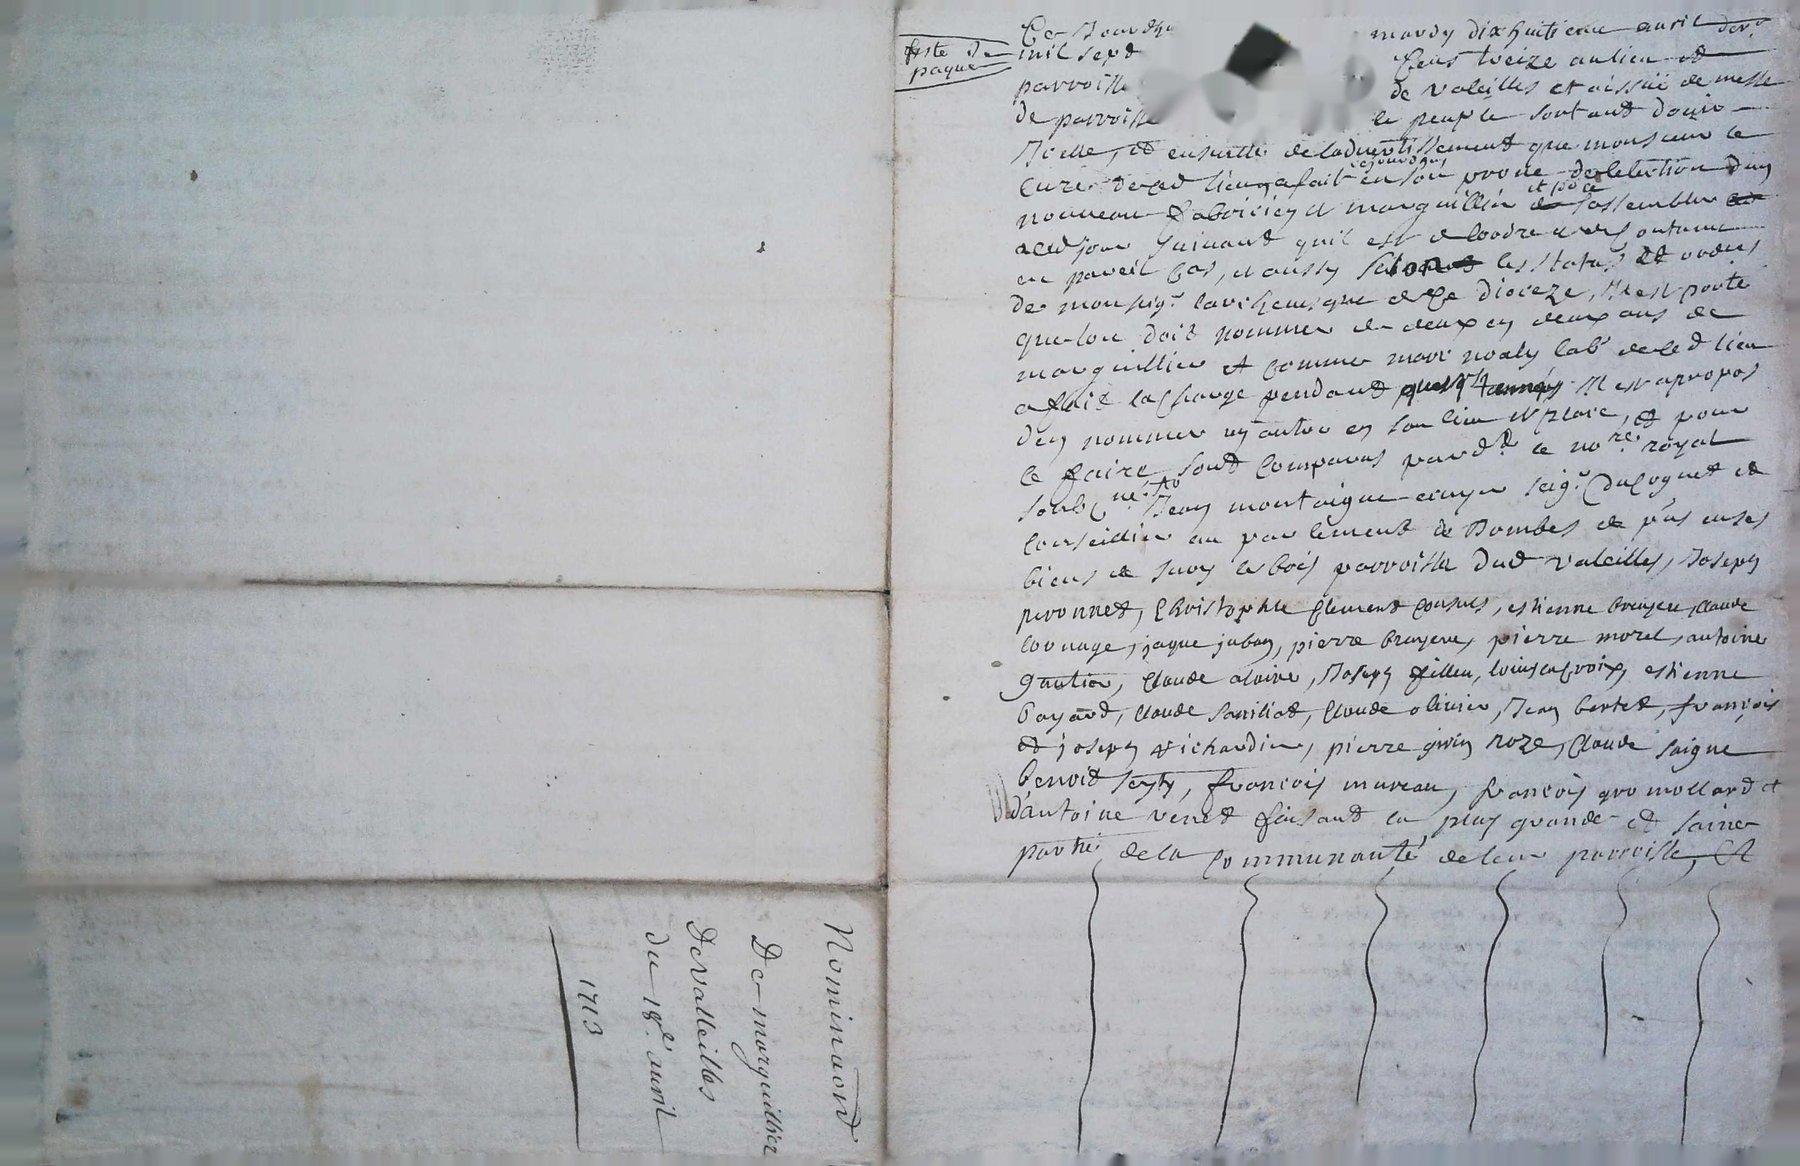 feste de
paques
Ce Jourdhu mardy dixhuitieme avril
mil sept Cens treize au lieu et
parroisse de valeilles et a issüe de messe
de parroisse le peuple sortant d'ouir
Icelle, et ensuitte de ladvertissement que monsieur le
curé dud lieu a fait cejourdhuy en son prone de lelection dun
nouveau fabricien et marguillier et pour ce sassembler
aud jour suivant quil est de lordre et de coutume
en pareil cas, et aussy selon les statuts et ordres
de monsigr larchevesque de ce dioceze, Il est porté
que lon doit nommer de deux en deux ans de
marguillier et comme marc noaly labr dud lieu
a fait la charge pendant années Il est apropos
den nommer un autre en son lieu et place, et pour
le faire sont comparus pard le nore royal
soubzné Jean montaigne ecuyer seigr du poynet et
conseillier au parlement de Dombes de pnt en ses
biens de sury le bois parroisse dud valeilles, Joseph
peronnet, Christophle clement consuls, estienne bruyere, claude
cornage, jaque jaban, pierre bruyere, pierre morel, antoine
gautier, claude aloire, Joseph filleu, louis lacroix, estienne
bayard, claude saniliat, claude olivier, Jean bertet, françois
et joseph richardier, pierre givin roze, claude saigne
benoit seyty, françois mureau, françois gromollard et
d'antoine venet faisant la plus grande et saine
partie de la communauté de leur parroisse, Et
Nominaōn
De marguillier
De Valleilles
du 18e avril
1713